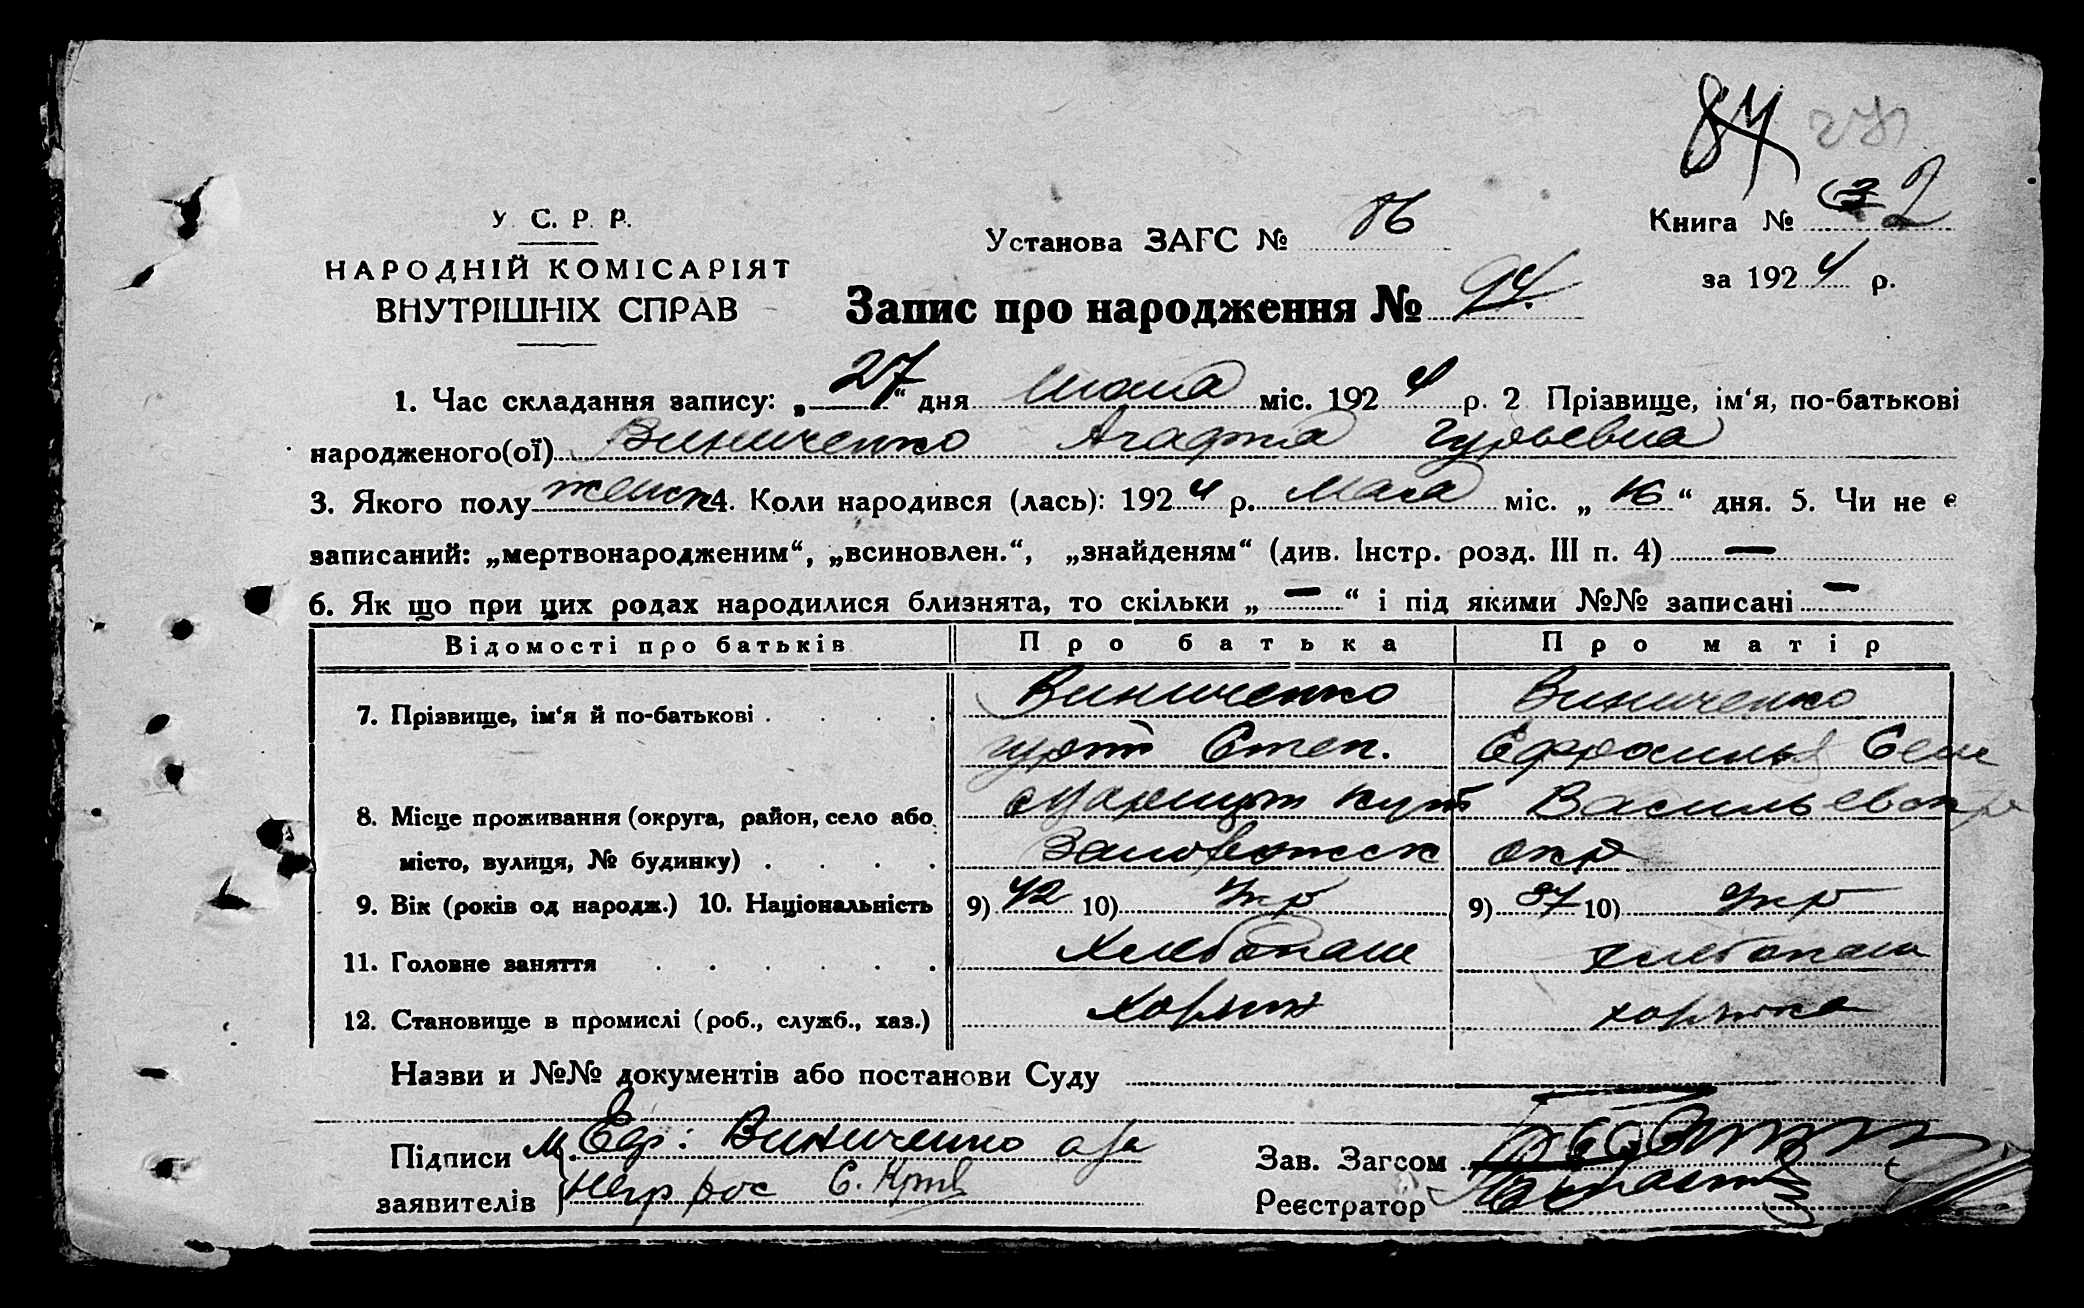 84
У. С. Р. Р.
НАРОДНІЙ КОМІСАРІЯТ
ВНУТРІШНІХ СПРАВ
Установа ЗАГС № 86
Книга № 2
за 1924 р.
Запис про народження № 94.
1. Час складання запису: „27“ дня міс. 1924 р. 2 Прізвище, ім‘я, по-батькові
народженого(ої) Виниченко Агафия Гурьевна
3. Якого полу женск 4. Коли народився (лась): 1924 р. Мая міс. „16“ дня. 5. Чи не є
записаний: „мертвонародженим“, „всиновлен.“, „знайденям“ (див. Інстр. розд. III п. 4) —
6. Як що при цих родах народилися близнята, то скільки „—“ і під якими №№ записані —
Відомості про батьків Про батька Про матір
7. Прізвище, ім‘я й по-батькові . . . . Виниченко Виниченко
Степ.
8. Місце проживання (округа, район, село або Васильевск
місто, вулиця, № будинку) . . . . окр
9. Вік (років од народж.) 10. Національність 9) 42 10) Укр 9) 37 10) Укр
11. Головне заняття . . . . . . Хлебопаш хлебопаш
12. Становище в промислі (роб., служб., хаз.)
Назви и №№ документів або постанови Суду
Підписи М. Ефр: Виниченко
заявителів негр рос
Зав. Загсом
Реєстратор